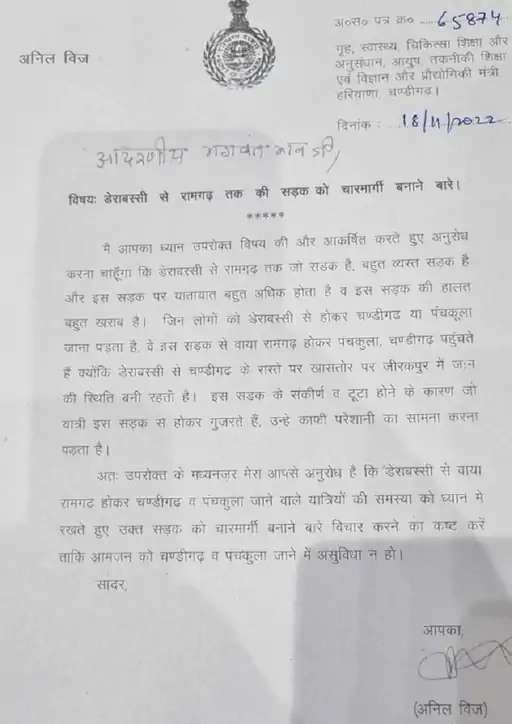 अ०स० पत्र क्र० ..... 65874
गृह, स्वास्थ्य, चिकित्सा शिक्षा और
अनुसंधान, आयुष, तकनीकी शिक्षा
एवं विज्ञान और प्रौद्योगिकी मंत्री,
हरियाणा, चण्डीगढ़।
अनिल विज
दिनांक : 18/11/2022
आदरणीय भगवंत मान जी,
विषयः डेराबस्सी से रामगढ़ तक की सड़क को चारमार्गी बनाने बारे।
*****
मै आपका ध्यान उपरोक्त विषय की और आकर्षित करते हुए अनुरोध
करना चाहूँगा कि डेराबस्सी से रामगढ़ तक जो सडक है, बहुत व्यस्त सड़क है
और इस सड़क पर यातायात बहुत अधिक होता है व इस सड़क की हालत
बहुत खराब है। जिन लोगो को डेराबस्सी से होकर चण्डीगढ या पंचकूला
जाना पड़ता है, वे इस सड़क से वाया रामगढ़ होकर पंचकुला, चण्डीगढ पहुंचते
हैं क्योंकि डेराबस्सी से चण्डीगढ के रास्ते पर खासतोर पर जीरकपुर में जाम
की स्थिति बनी रहती है। इस सडक के संकीर्ण व टूटा होने के कारण जो
यात्री इस सड़क से होकर गुजरते हैं, उन्हे काफी परेशानी का सामना करना
पड़ता है।
अतः उपरोक्त के मध्यनज़र मेरा आपसे अनुरोध है कि डेराबस्सी से वाया
रामगढ होकर चण्डीगढ व पंचकुला जाने वाले यात्रियों की समस्या को ध्यान मे
रखते हुए उक्त सड़क को चारमार्गी बनाने बारे विचार करने का कष्ट करें
ताकि आमजन को चण्डीगढ़ व पंचकुला जाने में असुविधा न हो।
सादर,
आपका,
(अनिल विज)